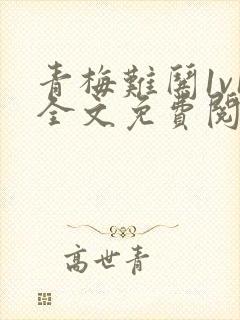 青梅難闖1v1
全文免費閱
高世青